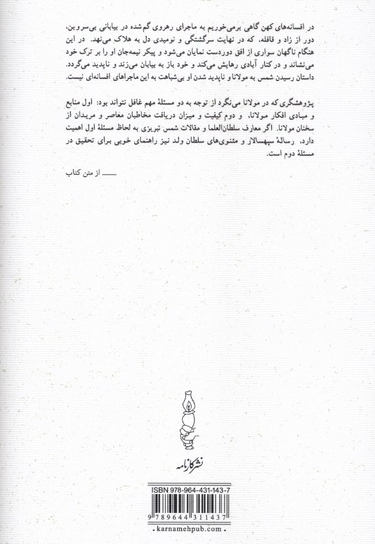 در افسانه‌های کهن گاهی برمی‌خوریم به ماجرای رهروی گم شده در بیابانی بی‌سروبن،
دور از زاد و قافله، که در نهایت سرگشتگی و نومیدی دل به هلاک می‌نهد. در این
هنگام ناگهان سواری از افق دوردست نمایان می‌شود و پیکر نیمه‌جان او را بر ترک خود
می‌نشاند و در کنار آبادی رهایش می‌کند و خود باز به بیابان می‌زند و ناپدید می‌گردد.
داستان رسیدن شمس به مولانا و ناپدید شدن او بی‌شباهت به این ماجراهای افسانه‌ای نیست.
پژوهشگری که در مولانا می‌نگرد از توجه به دو مسئلهٔ مهم غافل نتواند بود: اول منابع
و مبادی افکار مولانا، و دوم کیفیت و میزان دریافت مخاطبان معاصر و مریدان از
سخنان مولانا. اگر معارف سلطان‌العلما و مقالات شمس تبریزی به لحاظ مسئلهٔ اول اهمیت
دارد، رسالهٔ سپهسالار و مثنوی‌های سلطان ولد نیز راهنمای خوبی برای تحقیق در
مسئلهٔ دوم است.
ــــ از متن کتاب
نشر کارنامه
ISBN 978-964-431-143-7
9 789644 311437
karnamehpub.com